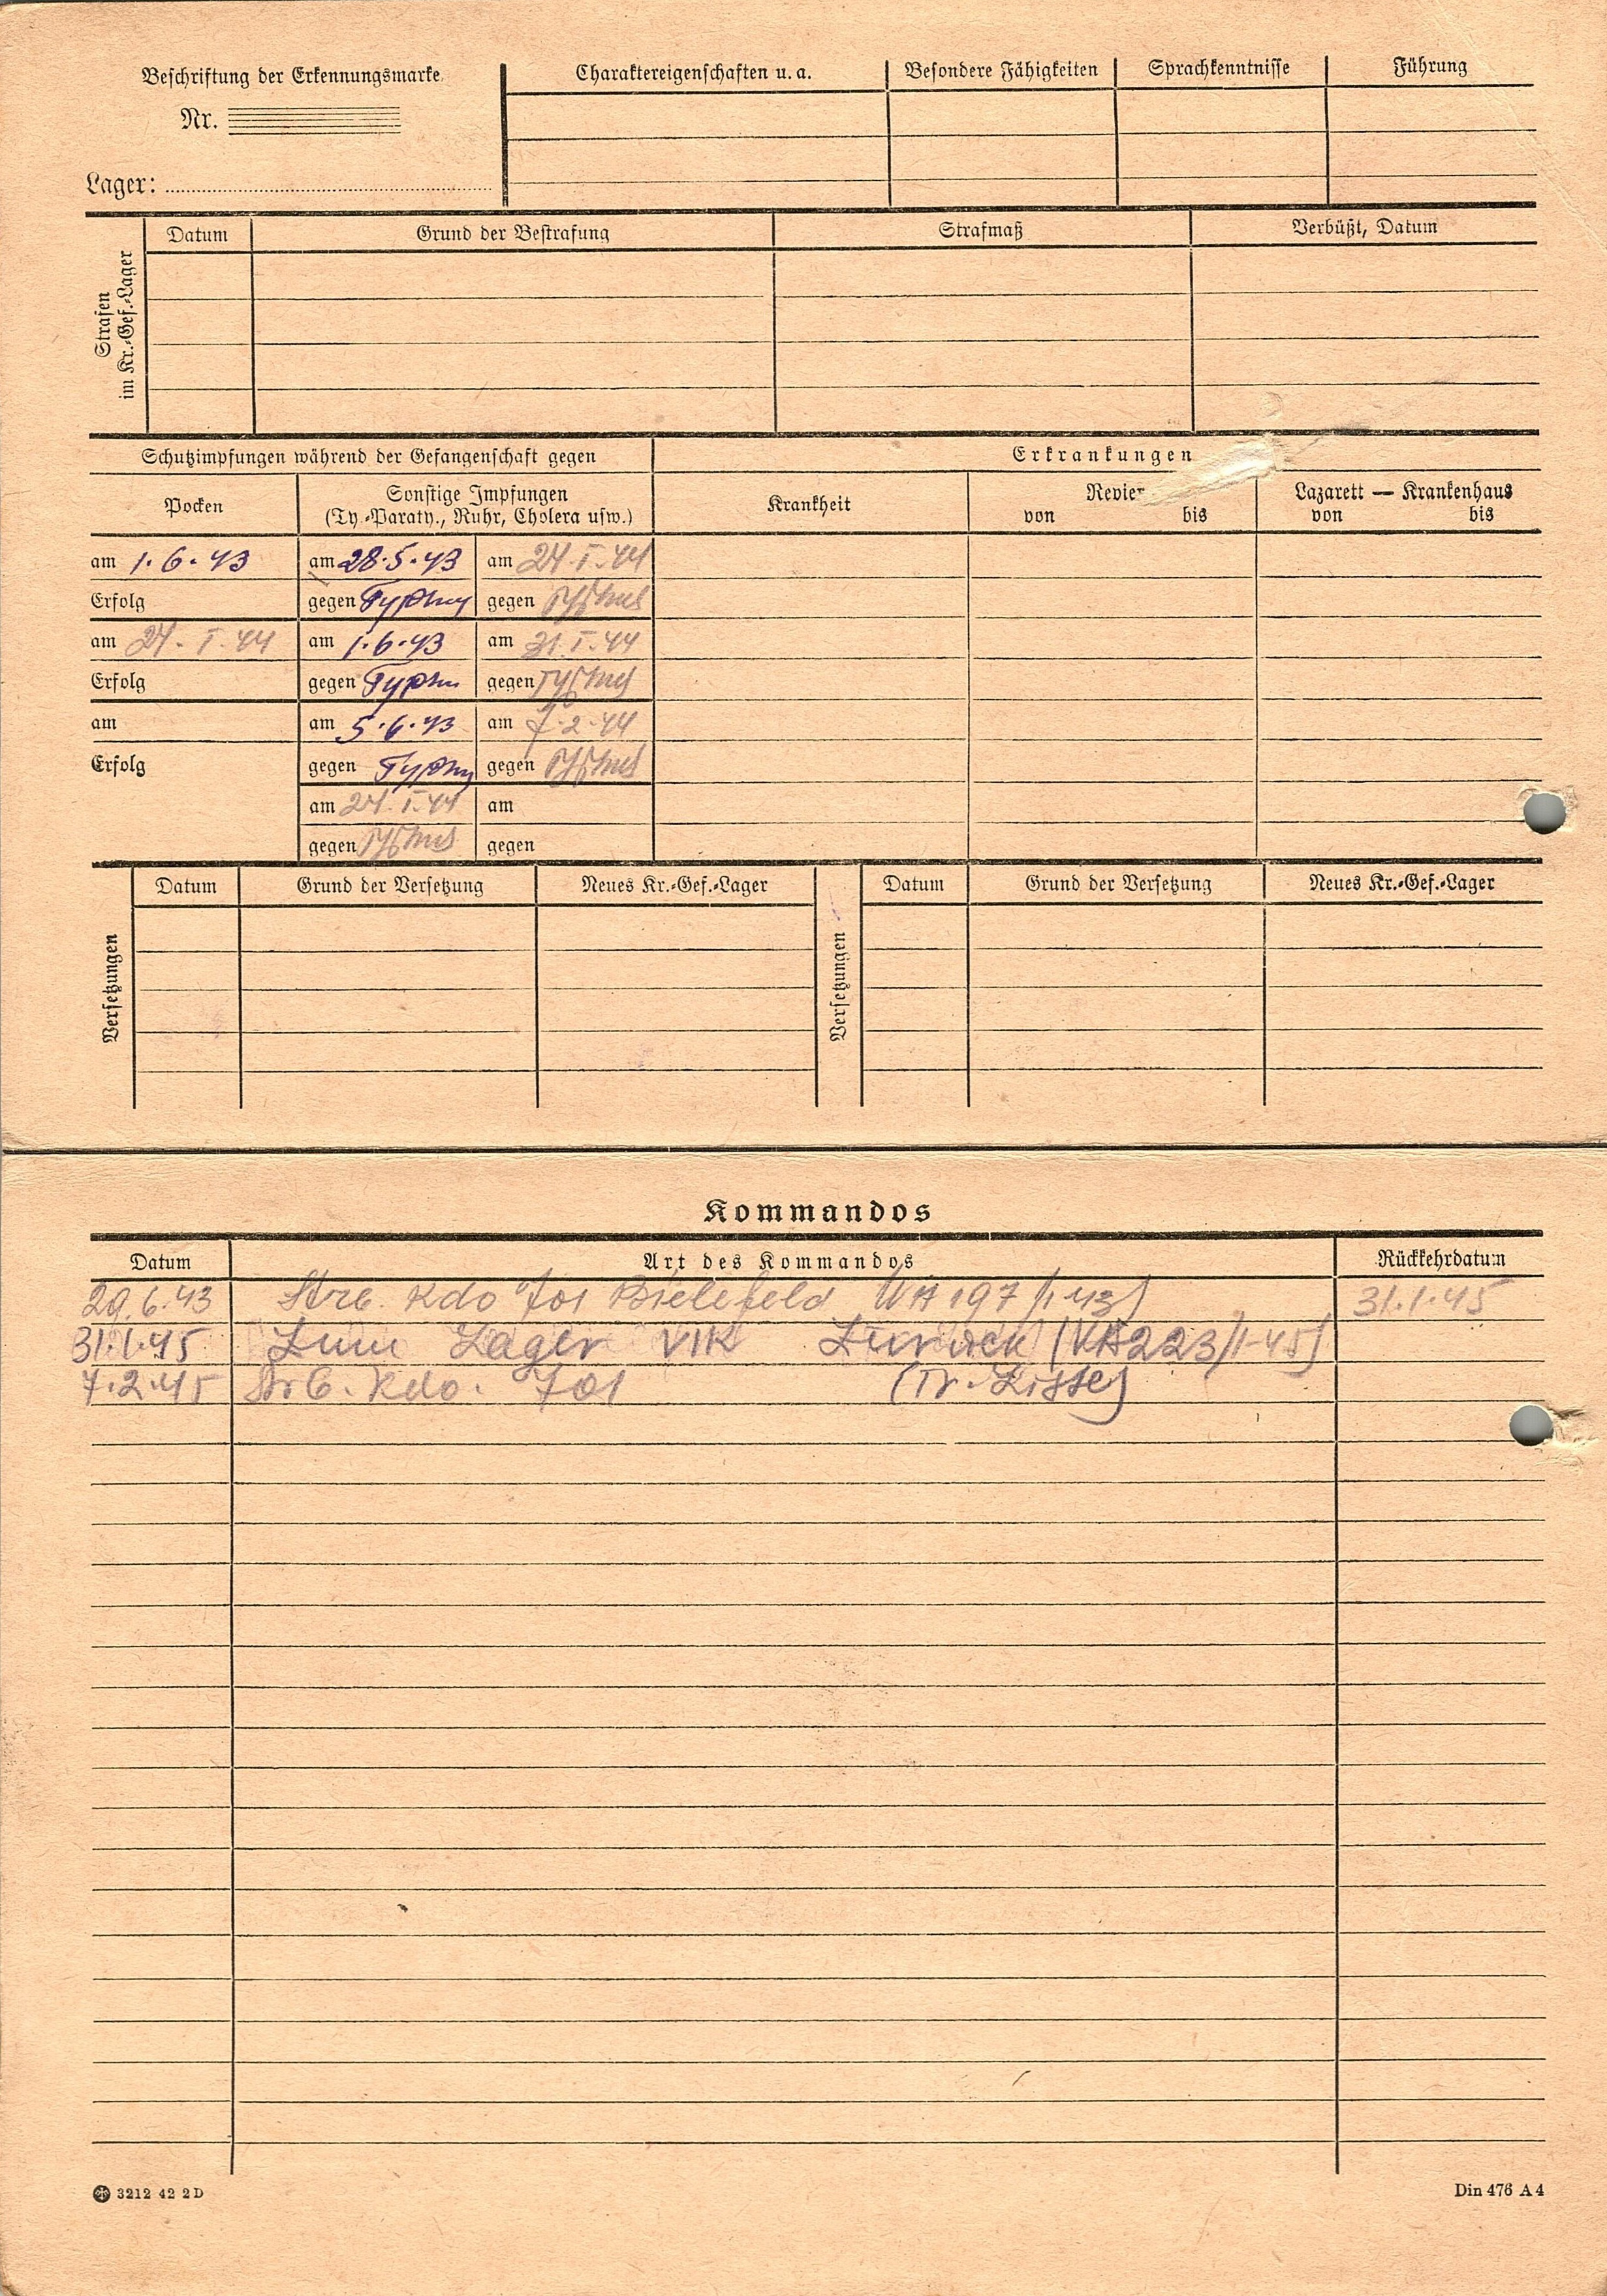 Beschriftung der Erkennungsmarke
Nr.
Lager:
Charaktereigenschaften u. a.
Besondere Fähigkeiten
Sprachkenntnisse
Führung
Strafen
im Kr.-Gef.-Lager
Datum
Grund der Bestrafung
Strafmaß
Verbüßt, Datum
Schutzimpfungen während der Gefangenschaft gegen
Erkrankungen
Pocken
Sonstige Impfungen
(Ty.-Paraty., Ruhr, Cholera usw.)
Krankheit
Revier
von bis
Lazarett — Krankenhaus
von bis
am 1.6.43 am 28.5.43 am 24.I.44
Erfolg gegen Typhus gegen Typhus
am 24.I.44 am 1.6.43 am 31.I.44
Erfolg gegen Typhus gegen Typhus
am am 5.6.43 am 7.2.44
Erfolg gegen Typhus gegen Typhus
am 24.I.44 am
gegen Typhus gegen
Versetzungen
Datum Grund der Versetzung Neues Kr.-Gef.-Lager
Versetzungen
Datum Grund der Versetzung Neues Kr.-Gef.-Lager
Kommandos
Datum Art des Kommandos Rückkehrdatum
29.6.43 Arb. Kdo 701 Bielefeld VA 197/1.43) 31.1.45
31.1.45 Zum Lager VIK zurück (VA 223/1-45)
7.2.45 Arb. Kdo. 701
3212 42 2D
Din 476 A4